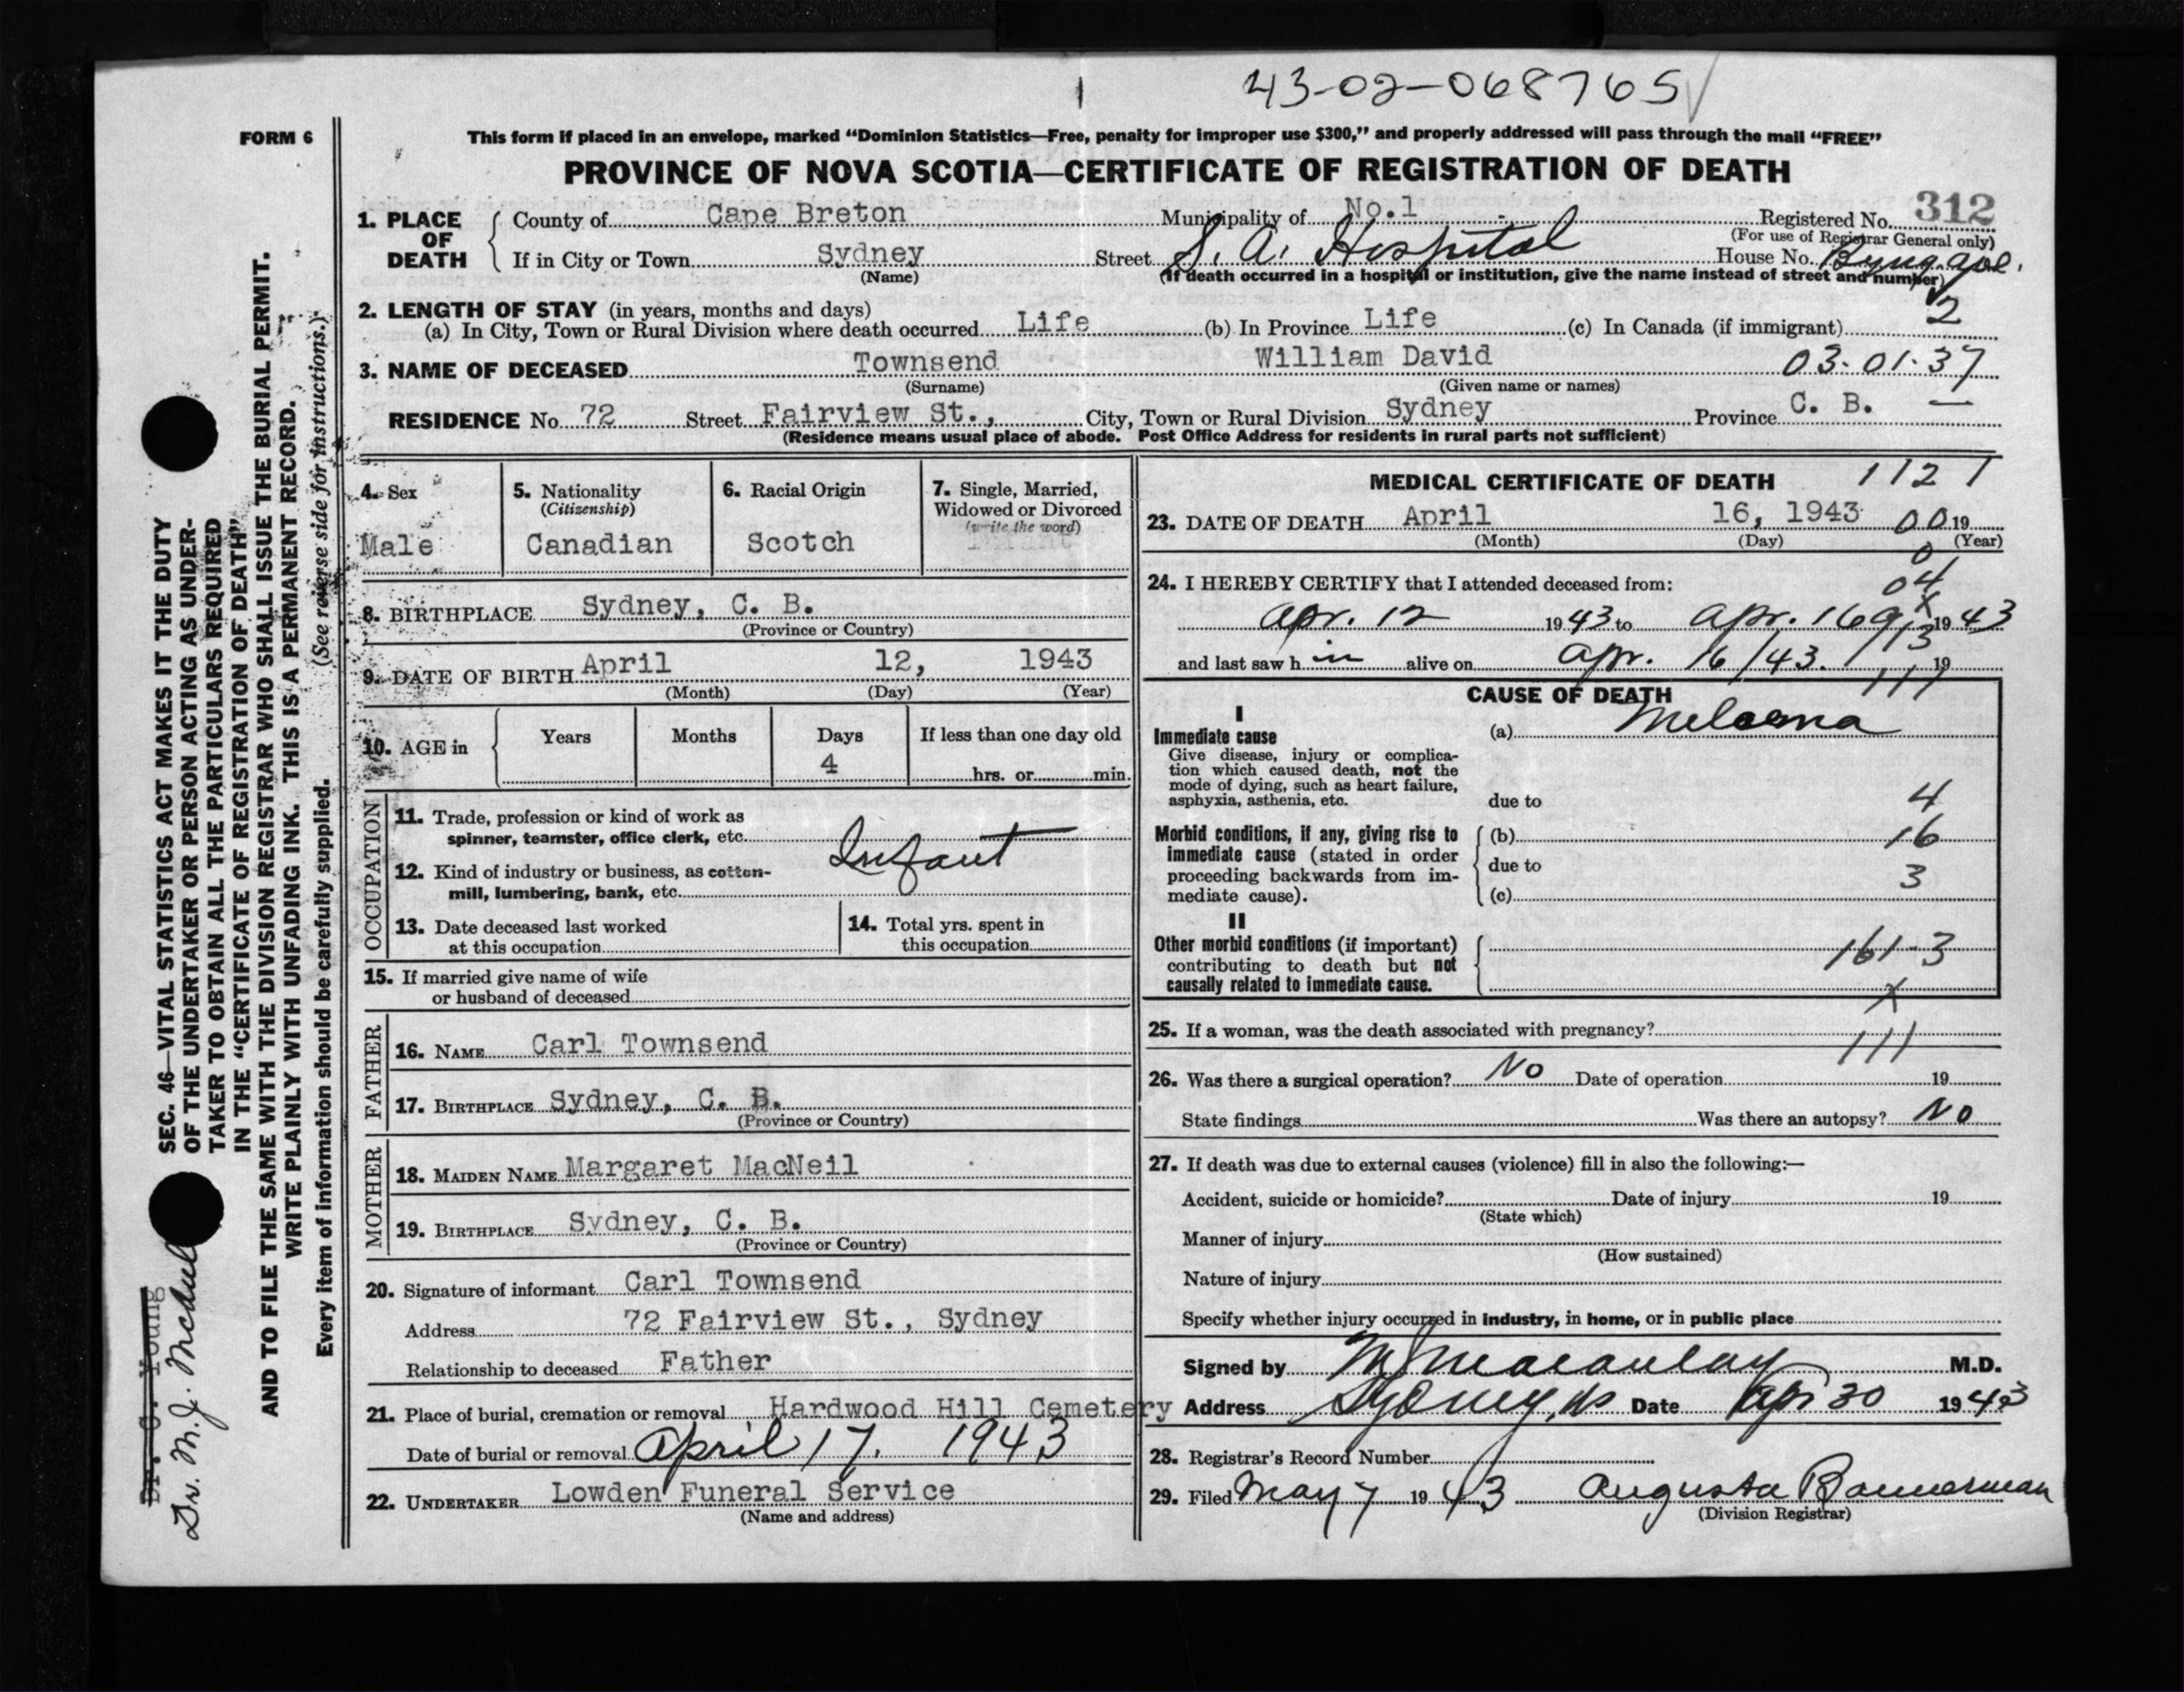 43-02-068765
FORM 6
This form if placed in an envelope, marked “Dominion Statistics—Free, penalty for improper use $300,” and properly addressed will pass through the mail “FREE”
PROVINCE OF NOVA SCOTIA—CERTIFICATE OF REGISTRATION OF DEATH
1. PLACE OF DEATH
County of Cape Breton Municipality of No.1 Registered No. 312
(For use of Registrar General only)
If in City or Town Sydney Street S. A. Hospital House No. Byng Ave.
(Name) (If death occurred in a hospital or institution, give the name instead of street and number)
2. LENGTH OF STAY (in years, months and days) 2
(a) In City, Town or Rural Division where death occurred Life (b) In Province Life (c) In Canada (if immigrant)
3. NAME OF DECEASED Townsend William David 03-01-37
(Surname) (Given name or names)
RESIDENCE No. 72 Street Fairview St., City, Town or Rural Division Sydney Province C. B. —
(Residence means usual place of abode. Post Office Address for residents in rural parts not sufficient)
4. Sex
Male
5. Nationality
(Citizenship)
Canadian
6. Racial Origin
Scotch
7. Single, Married,
Widowed or Divorced
(write the word)
Infant
8. BIRTHPLACE Sydney, C. B.
(Province or Country)
9. DATE OF BIRTH April 12, 1943
(Month) (Day) (Year)
10. AGE in Years Months Days If less than one day old
4 hrs. or min.
OCCUPATION
11. Trade, profession or kind of work as
spinner, teamster, office clerk, etc.
Infant
12. Kind of industry or business, as cotton-
mill, lumbering, bank, etc.
13. Date deceased last worked
at this occupation
14. Total yrs. spent in
this occupation
15. If married give name of wife
or husband of deceased
FATHER
16. NAME Carl Townsend
17. BIRTHPLACE Sydney, C. B.
(Province or Country)
MOTHER
18. MAIDEN NAME Margaret MacNeil
19. BIRTHPLACE Sydney, C. B.
(Province or Country)
20. Signature of informant Carl Townsend
Address 72 Fairview St., Sydney
Relationship to deceased Father
21. Place of burial, cremation or removal Hardwood Hill Cemetery
Date of burial or removal April 17. 1943
22. UNDERTAKER Lowden Funeral Service
(Name and address)
MEDICAL CERTIFICATE OF DEATH 112 1
23. DATE OF DEATH April 16, 1943 00 19
(Month) (Day) (Year)
0
24. I HEREBY CERTIFY that I attended deceased from: 04
x
Apr. 12 1943 to Apr. 16 1943
and last saw h im alive on Apr. 16/43. 19
13
111
CAUSE OF DEATH
I
Immediate cause (a) Melaena
Give disease, injury or complica-
tion which caused death, not the
mode of dying, such as heart failure,
asphyxia, asthenia, etc. due to 4
Morbid conditions, if any, giving rise to (b) 16
immediate cause (stated in order due to
proceeding backwards from im- 3
mediate cause). (c)
II
Other morbid conditions (if important) 161-3
contributing to death but not
causally related to immediate cause. x
25. If a woman, was the death associated with pregnancy? 111
26. Was there a surgical operation? No Date of operation 19
State findings Was there an autopsy? No
27. If death was due to external causes (violence) fill in also the following:—
Accident, suicide or homicide? Date of injury 19
(State which)
Manner of injury
(How sustained)
Nature of injury
Specify whether injury occurred in industry, in home, or in public place
Signed by M J Macaulay M.D.
Address Sydney, NS Date Apr 30 1943
28. Registrar's Record Number
29. Filed May 7 1943 Augusta Bannerman
(Division Registrar)
SEC. 46—VITAL STATISTICS ACT MAKES IT THE DUTY
OF THE UNDERTAKER OR PERSON ACTING AS UNDER-
TAKER TO OBTAIN ALL THE PARTICULARS REQUIRED
IN THE “CERTIFICATE OF REGISTRATION OF DEATH”
AND TO FILE THE SAME WITH THE DIVISION REGISTRAR WHO SHALL ISSUE THE BURIAL PERMIT.
WRITE PLAINLY WITH UNFADING INK. THIS IS A PERMANENT RECORD.
Every item of information should be carefully supplied. (See reverse side for instructions.)
Dr. G. Young
Dr. M. J.